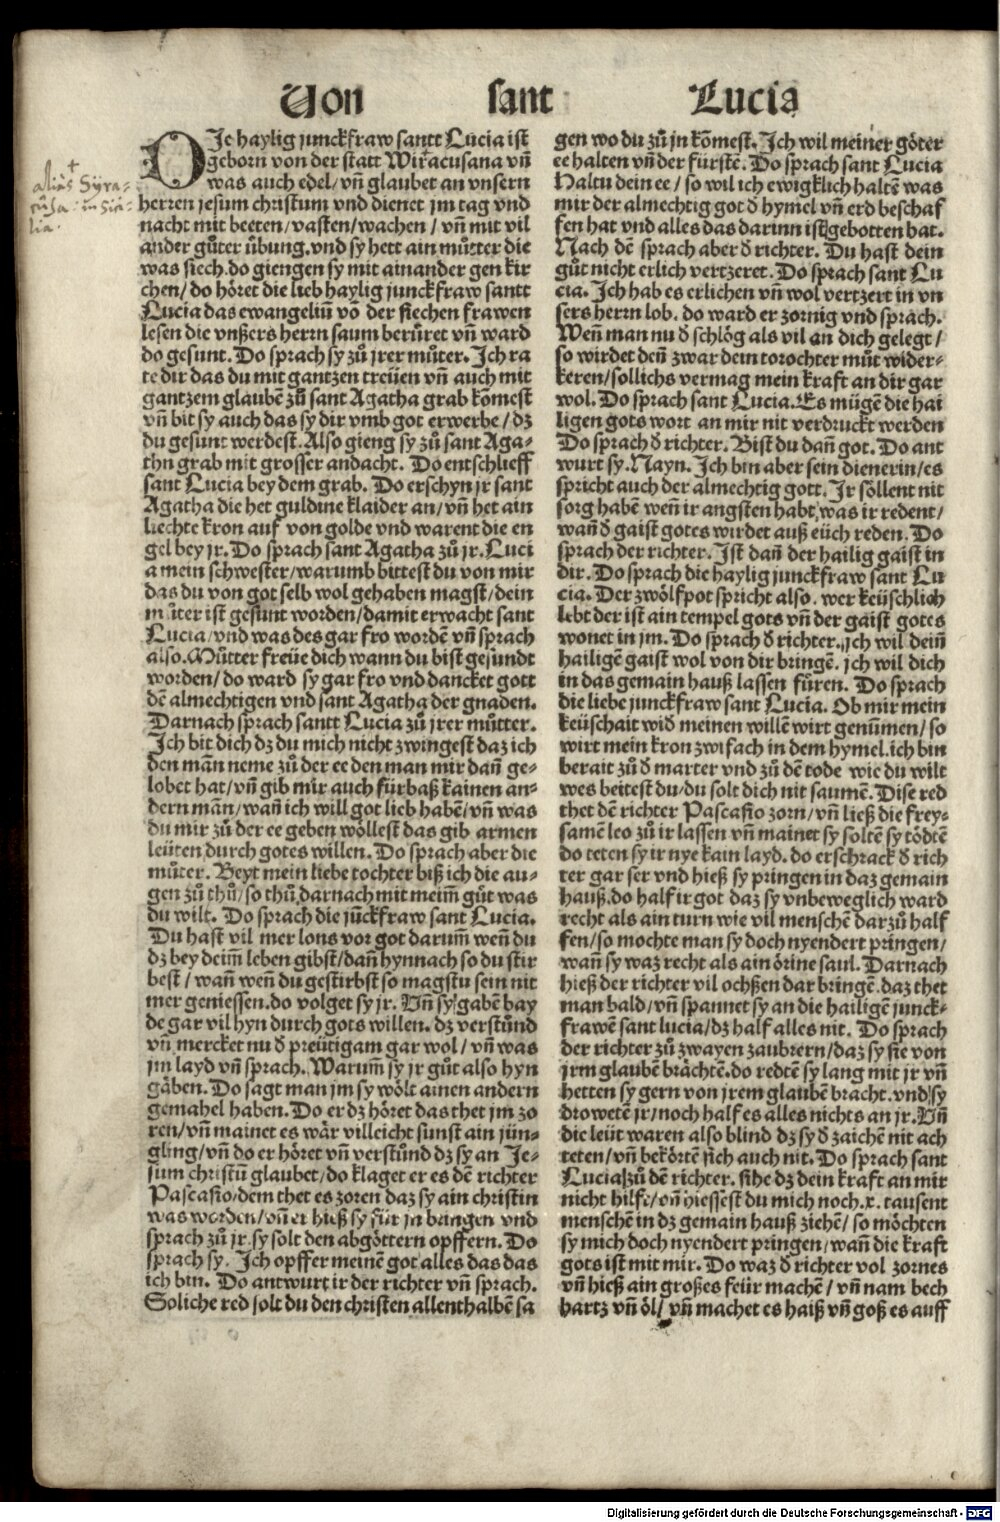 Von sant Lucia
DIe haylig junckfraw santt Lucia ist
geborn von der statt Wiracusana vñ
was auch edel/ vñ glaubet an vnsern
herren jesum christum vnd dienet jm tag vnd
nacht mit beeten/vasten/wachen / vñ mit vil
ander gůter übung.vnd sy hett ain můtter die
was siech.do giengen sy mit ainander gen kir
chen/ do höret die lieb haylig junckfraw santt
Lucia das ewangeliũ võ der siechen frawen
lesen die vnßers herrn saum berůret vñ ward
do gesunt. Do sprach sy zů jrer můter. Ich ra
te dir das du mit gantzen treüen vñ auch mit
gantzem glaubẽ zů sant Agatha grab kõmest
vñ bit sy auch das sy dir vmb got erwerbe / dz
du gesunt werdest. Also gieng sy zů sant Aga-
thn grab mit grosser andacht. Do entschlieff
sant Lucia bey dem grab. Do erschyn jr sant
Agatha die het guldine klaider an/ vñ het ain
liechte kron auf von golde vnd warent die en
gel bey jr. Do sprach sant Agatha zů jr. Luci
a mein schwester/warumb bittest du von mir
das du von got selb wol gehaben magst/dein
můter ist gesunt worden/damit erwacht sant
Lucia/vnd was des gar fro wordẽ vñ sprach
also. Můtter freüe dich wann du bist gesundt
worden/ do ward sy gar fro vnd dancket gott
dẽ almechtigen vnd sant Agatha der gnaden.
Darnach sprach santt Lucia zů jrer můtter.
Ich bit dich dz du mich nicht zwingest daz ich
den man neme zů der ee den man mir dañ ge-
lobet hat/ vñ gib mir auch fürbaß kainen an-
dern mãn/ wañ ich will got lieb habẽ/ vñ was
du mir zů der ee geben wöllest das gib armen
leüten durch gotes willen. Do sprach aber die
můter. Beyt mein liebe tochter biß ich die au-
gen zů thů/ so thů darnach mit meim̃ gůt was
du wilt. Do sprach die jũckfraw sant Lucia.
Du hast vil mer lons vor got darum̃ wen̄ du
dz bey deim̃ leben gibst/ dañ hynnach so du stir
best / wañ wen̄ du gestirbst so magstu sein nit
mer geniessen.do volget sy jr. Vñ sy gabẽ bay
de gar vil hyn durch gots willen. dz verstůnd
vñ mercket nu d̕ preütigam gar wol/ vñ was
jm layd vñ sprach. Warum̃ sy jr gůt also hyn
gäben. Do sagt man jm sy wölt ainen andern
gemahel haben. Do er dz höret das thet jm zo
ren/ vñ mainet es wär villeicht sunst ain jün-
gling/ vñ do er höret vñ verstůnd dz sy an Je-
sum christũ glaubet/ do klaget er es dẽ richter
Pascasio/dem thet es zoren daz sy ain christin
was worden/ vñ er hieß sy für jn bringen vnd
sprach zů jr.sy solt den abgöttern opffern. Do
sprach sy. Ich opffer meinẽ got alles das das
ich bin. Do antwurt ir der richter vñ sprach.
Soliche red solt du den christen allenthalbẽ sa
gen wo du zů jn kõmest. Ich wil meiner göter
ee halten vñ der fürstẽ. Do sprach sant Lucia
Haltu dein ee / so wil ich ewigklich haltẽ was
mir der almechtig got d̕ hymel vñ erd beschaf
fen hat vnd alles das darinn ist gebotten hat.
Nach dẽ sprach aber d̕ richter. Du hast dein
gůt nicht erlich vertzeret. Do sprach sant Lu
cia. Ich hab es erlichen vñ wol vertzert in vn
sers herrn lob. do ward er zornig vnd sprach.
Wen̄ man nu d̕ schlög als vil an dich gelegt /
so wirdet den̄ zwar dein torochter můt wider-
keren/sollichs vermag mein kraft an dir gar
wol. Do sprach sant Lucia. Es mügẽ die hai
ligen gots wort an mir nit verdruckt werden
Do sprach d̕ richter. Bist du dañ got. Do ant
wurt sy. Nayn. Ich bin aber sein dienerin/es
spricht auch der almechtig gott. Ir söllent nit
sorg habẽ wen̄ ir angsten habt was ir redent/
wañ d̕ gaist gotes wirdet auß eüch reden. Do
sprach der richter. Ist dañ der hailig gaist in
dir. Do sprach die haylig junckfraw sant Lu
cia. Der zwölfpot spricht also. wer keüschlich
lebt der ist ain tempel gots vñ der gaist gotes
wonet in jm. Do sprach d̕ richter. ich wil dein̄
hailigẽ gaist wol von dir bringẽ. ich wil dich
in das gemain hauß lassen fůren. Do sprach
die liebe junckfraw sant Lucia. Ob mir mein
keüschait wid̕ meinen willẽ wirt genũmen/ so
wirt mein kron zwifach in dem hymel. ich bin
berait zů d̕ marter vnd zů dẽ tode wie du wilt
wes beitest du/du solt dich nit saumẽ. Dise red
thet dẽ richter Pascasio zorn/ vñ ließ die frey-
samẽ leo zů ir lassen vñ mainet sy soltẽ sy tödtẽ
do teten sy ir nye kain layd. do erschrack d̕ rich
ter gar ser vnd hieß sy pringen in daz gemain
hauß. do half ir got daz sy vnbeweglich ward
recht als ain turn wie vil menschẽ darzů half
fen/ so mochte man sy doch nyendert pringen/
wañ sy waz recht als ain örine saul. Darnach
hieß der richter vil ochßen dar bringẽ. daz thet
man bald/ vñ spannet sy an die hailigẽ junck-
frawẽ sant lucia/dz half alles nit. Do sprach
der richter zů zwayen zaubrern/daz sy sie von
jrm glaubẽ brächtẽ. do redtẽ sy lang mit jr vñ
hetten sy gern von jrem glaubẽ bracht. vnd sy
drowetẽ jr/ noch half es alles nichts an jr. Vñ
die leüt waren also blind dz sy d̕ zaichẽ nit ach
teten/ vñ bekörtẽ sich auch nit. Do sprach sant
Lucia zů dẽ richter. sihe dz dein kraft an mir
nicht hilft/ vñ hiessest du mich noch .x. tausent
menschẽ in dz gemain hauß ziehẽ/ so möchten
sy mich doch nyendert pringen/ wañ die kraft
gots ist mit mir. Do waz d̕ richter vol zornes
vñ hieß ain großes feür machẽ/ vñ nam bech
hartz vñ öl/ vñ machet es haiß vñ goß es auff
aliàs Syra-
cusa in Sici-
lia.
Digitalisierung gefördert durch die Deutsche Forschungsgemeinschaft - DFG